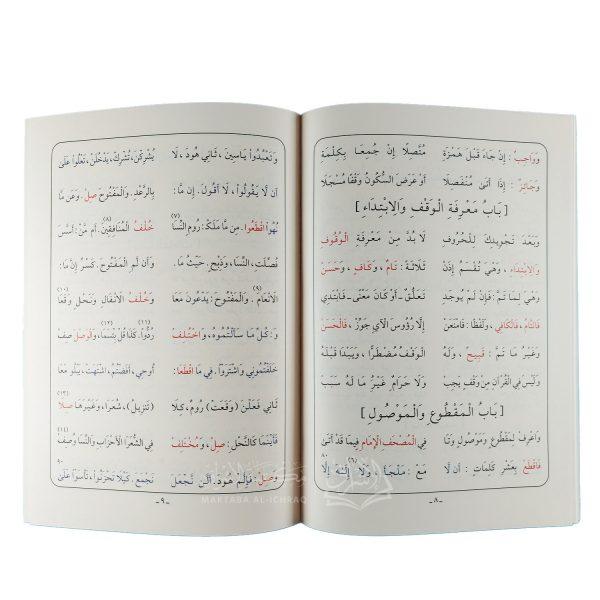 وَوَاجِبٌ : إِنْ جَاءَ قَبْلَ هَمْزَةِ مُتَّصِلًا إِنْ جُمِعَا بِكِلْمَةِ
وَجَائِزٌ : إِذَا أَتَىٰ مُنْفَصِلَا أَوْ عَرَضَ السُّكُونُ وَقْفًا مُسْجَلَا
[ بَابُ مَعْرِفَةِ الْوَقْفِ وَالِابْتِدَاءِ ]
وَبَعْدَ تَجْوِيدِكَ لِلْحُرُوفِ لَا بُدَّ مِنْ مَعْرِفَةِ الْوُقُوفِ
وَالِابْتِدَاءِ ، وَهْيَ تُقْسَمُ إِذَنْ ثَلَاثَةً : تَامٌ ، وَكَافٍ ، وَحَسَنْ
وَهْيَ لِمَا تَمَّ : فَإِنْ لَمْ يُوجَدِ تَعَلُّقٌ - أَوْ كَانَ مَعْنًى - فَابْتَدِي
فَالتَّامُ ، فَالْكَافِي ، وَلَفْظًا : فَامْنَعَنْ إِلَّا رُؤُوسَ الْآيِ جَوِّزْ ، فَالْحَسَنْ
وَغَيْرُ مَا تَمَّ : قَبِيحٌ ، وَلَهُ الْوَقْفُ مُضْطَرًّا ، وَيَبْدَا قَبْلَهُ
وَلَيْسَ فِي الْقُرْآنِ مِنْ وَقْفٍ يَجِبْ وَلَا حَرَامٌ غَيْرُ مَا لَهُ سَبَبْ
[ بَابُ الْمَقْطُوعِ وَالْمَوْصُولِ ]
وَاعْرِفْ لِمَقْطُوعٍ وَمَوْصُولٍ وَتَا فِي الْمُصْحَفِ الْإِمَامِ فِيمَا قَدْ أَتَىٰ
فَاقْطَعْ بِعَشْرِ كَلِمَاتٍ : أَن لَّا مَعْ : مَلْجَأَ ، وَلَا إِلَٰهَ إِلَّا
٨٠
(٦)
-٨-
وَتَعْبُدُوا يَاسِينَ ، ثَانِي هُودَ ، لَا يُشْرِكْنَ، تُشْرِكْ، يَدْخُلَنْ، تَعْلُوا عَلَىٰ
أَن لَّا يَقُولُوا، لَا أَقُولَ. إِن مَّا : بِالرَّعْدِ. وَالْمَفْتُوحَ صِلْ. وَعَن مَّا
نُهُوا اقْطَعُوا (٧). مِن مَّا مَلَكْ : رُومِ النِّسَا خُلْفُ (٨) الْمُنَافِقِينَ. أَم مَّنْ : أَسَّسَ
فُصِّلَتْ، النِّسَا، وَذِبْحٍ. حَيْثُ مَا. وَأَن لَّمِ الْمَفْتُوحَ. كَسْرُ إِنَّ مَا :
الْأَنْعَامَ (٩). وَالْمَفْتُوحَ : يَدْعُونَ مَعَا وَخُلْفُ (١٠) الْأَنْفَالِ وَنَحْلٍ وَقَعَا
وَ : كُلِّ مَا سَأَلْتُمُوهُ. وَاخْتُلِفْ رُدُّوا (١١). كَذَا قُلْ بِئْسَمَا (١٢)، وَالْوَصْلَ صِفْ
خَلَفْتُمُونِي وَاشْتَرَوْا. فِي مَا اقْطَعَا : أُوحِي، أَفَضْتُمُ، اشْتَهَتْ، يَبْلُو مَعَا
ثَانِي فَعَلْنَ (وَقَعَتْ) رُومٌ، كِلَا (تَنْزِيلُ)، شُعَرَا، وَغَيْرَهَا صِلَا (١٣)
فَأَيْنَمَا كَالنَّحْلِ : صِلْ، وَمُخْتَلِفْ فِي الشُّعَرَا الْأَحْزَابِ وَالنِّسَا وُصِفْ (١٤)
وَصِلْ : فَإِلَّمْ هُودَ. أَلَّن نَّجْعَلَ نَجْمَعَ. كَيْلَا تَحْزَنُوا، تَأْسَوْا عَلَىٰ
٩٠
-٩-
MAKTABA AL-ICHRAQ